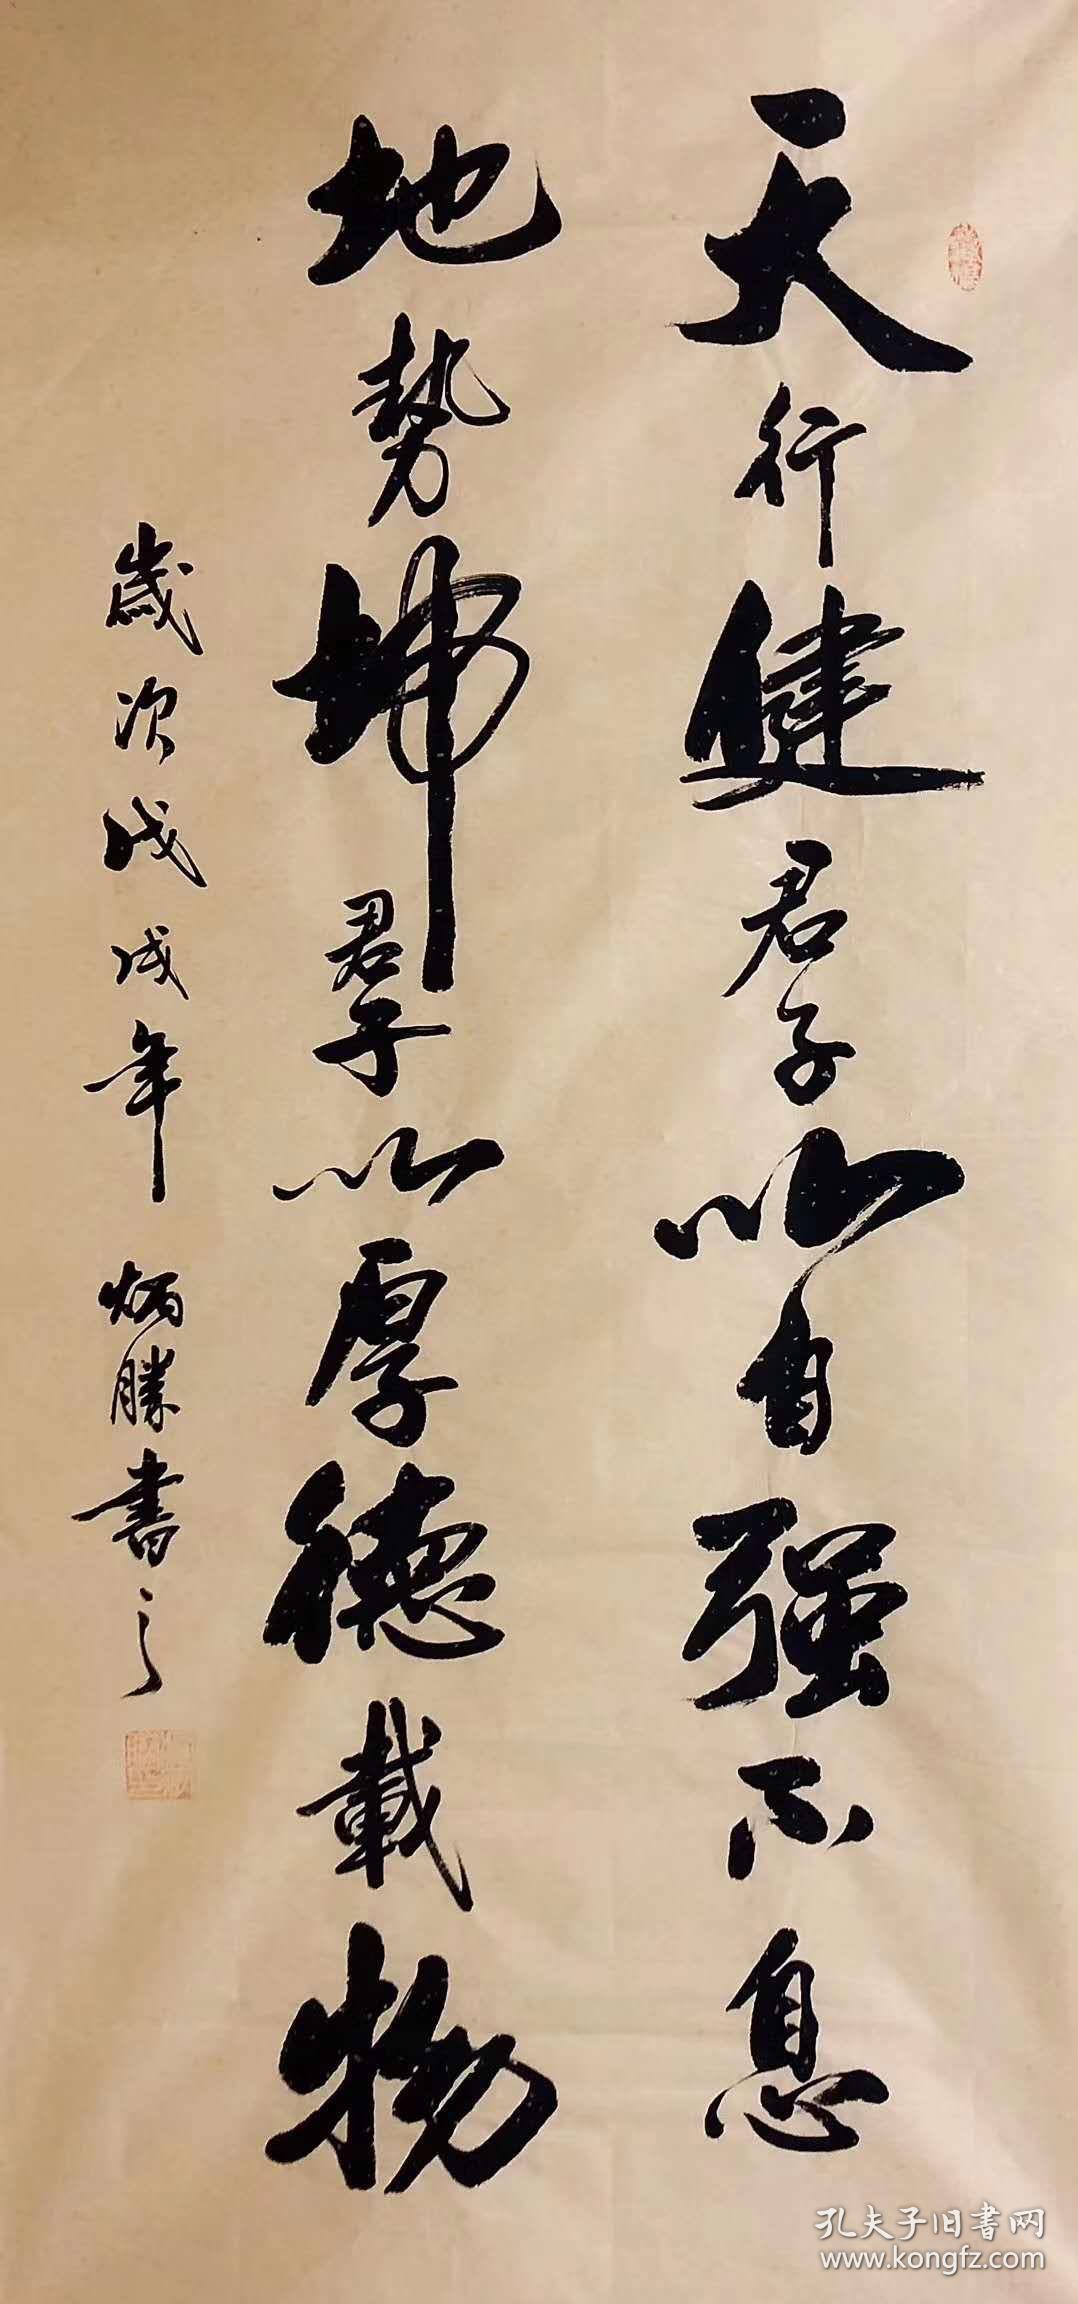 天行健君子以自强不息
地勢坤君子以厚德載物
歲次戊戌年 炳勝書之
孔夫子旧書网
www.kongfz.com